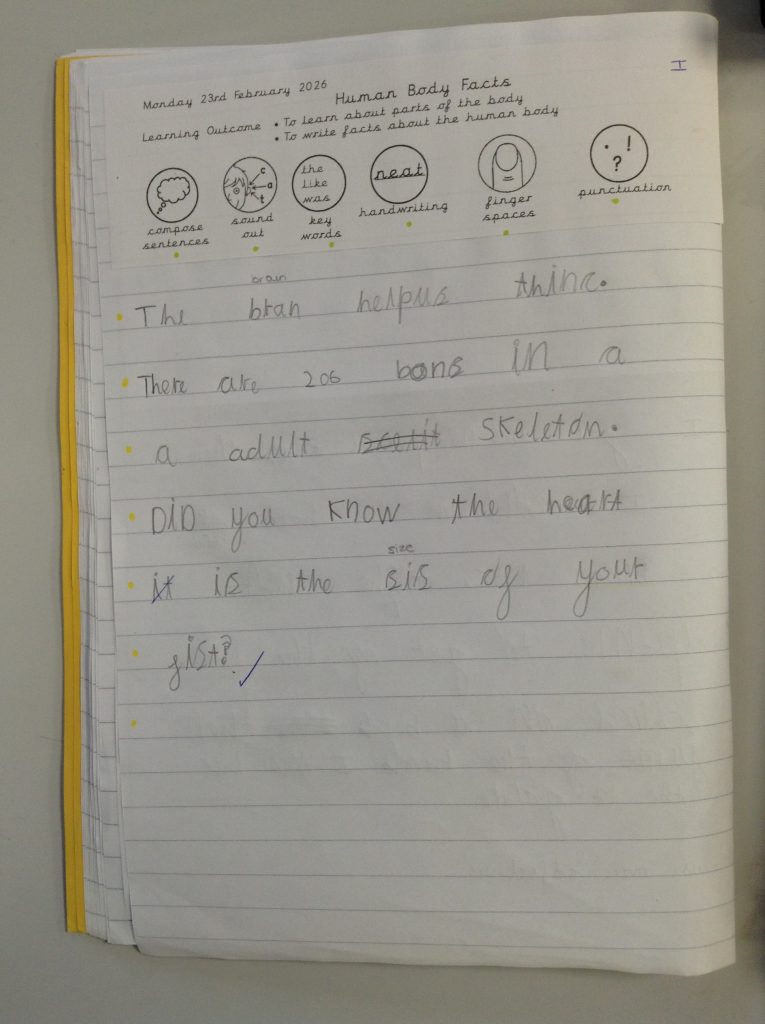 I
Monday 23rd February 2026 Human Body Facts
Learning Outcome • To learn about parts of the body
• To write facts about the human body
c
a
t
the
like
was
neat
. !
?
compose
sentences
sound
out
key
words
handwriting
finger
spaces
punctuation
brain
The bran helpus thinc.
There are 206 bons in a
a adult skeleton.
DiD you know the heart
size
it is the sis of your
fist?